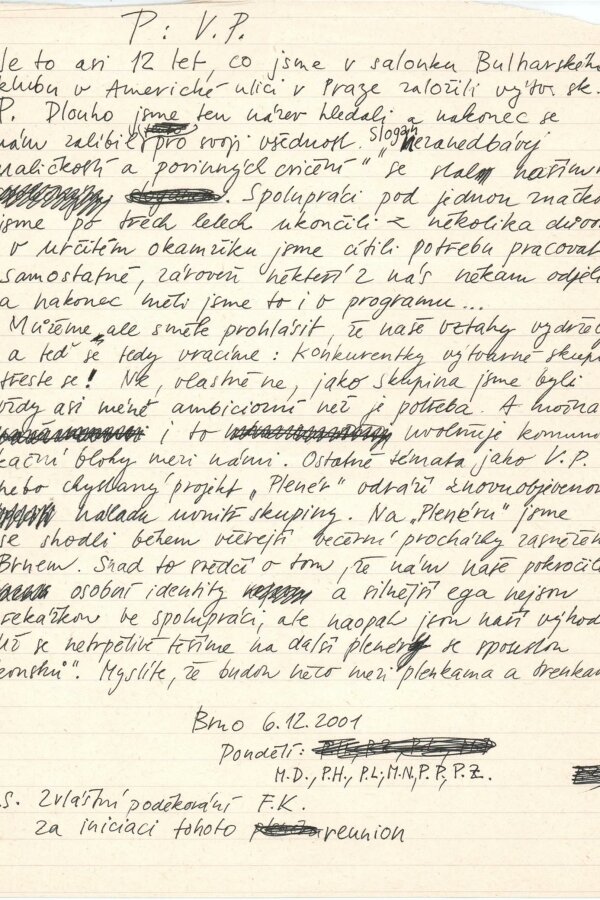 P : V.P.
Je to asi 12 let, co jsme v salonku Bulharského
klubu v Americké ulici v Praze založili výtv. sk.
P. Dlouho jsme ten název hledali a nakonec se
nám zalíbil pro svoji všednost. Slogan „nezanedbávej
maličkostí a povinných cvičení“ se stal naším
. Spolupráci pod jednou značkou
jsme po třech letech ukončili z několika důvodů
v určitém okamžiku jsme cítili potřebu pracovat
samostatně, zároveň někteří z nás někam odjeli
a nakonec měli jsme to i v programu...
Můžeme ale směle prohlásit, že naše vztahy vydržely
a teď se tedy vracíme : Konkurentky výtvarné skupiny
třeste se! Ne, vlastně ne, jako skupina jsme byli
vždy asi méně ambiciozní než je potřeba. A možná
i to uvolňuje komuni
kační bloky mezi námi. Ostatně témata jako V.P.
nebo chystaný projekt „Plenér“ odráží znovuobjevenou
náladu uvnitř skupiny. Na „Plenéru“ jsme
se shodli během včerejší večerní procházky zasněženým
Brnem. Snad to svědčí o tom, že nám naše pokročilé
osobní identity a silnější ega nejsou
překážkou ve spolupráci, ale naopak jsou naší výhodou
Už se netrpělivě těšíme na další plenéry se spoustou
. Myslíte, že budou něco mezi plenkama a trenkama
Brno 6.12.2001
Pondělí:
M.D., P.H., P.L., M.N., P.P., P.Z.
P.S. Zvláštní poděkování F.K.
za iniciaci tohoto reunion